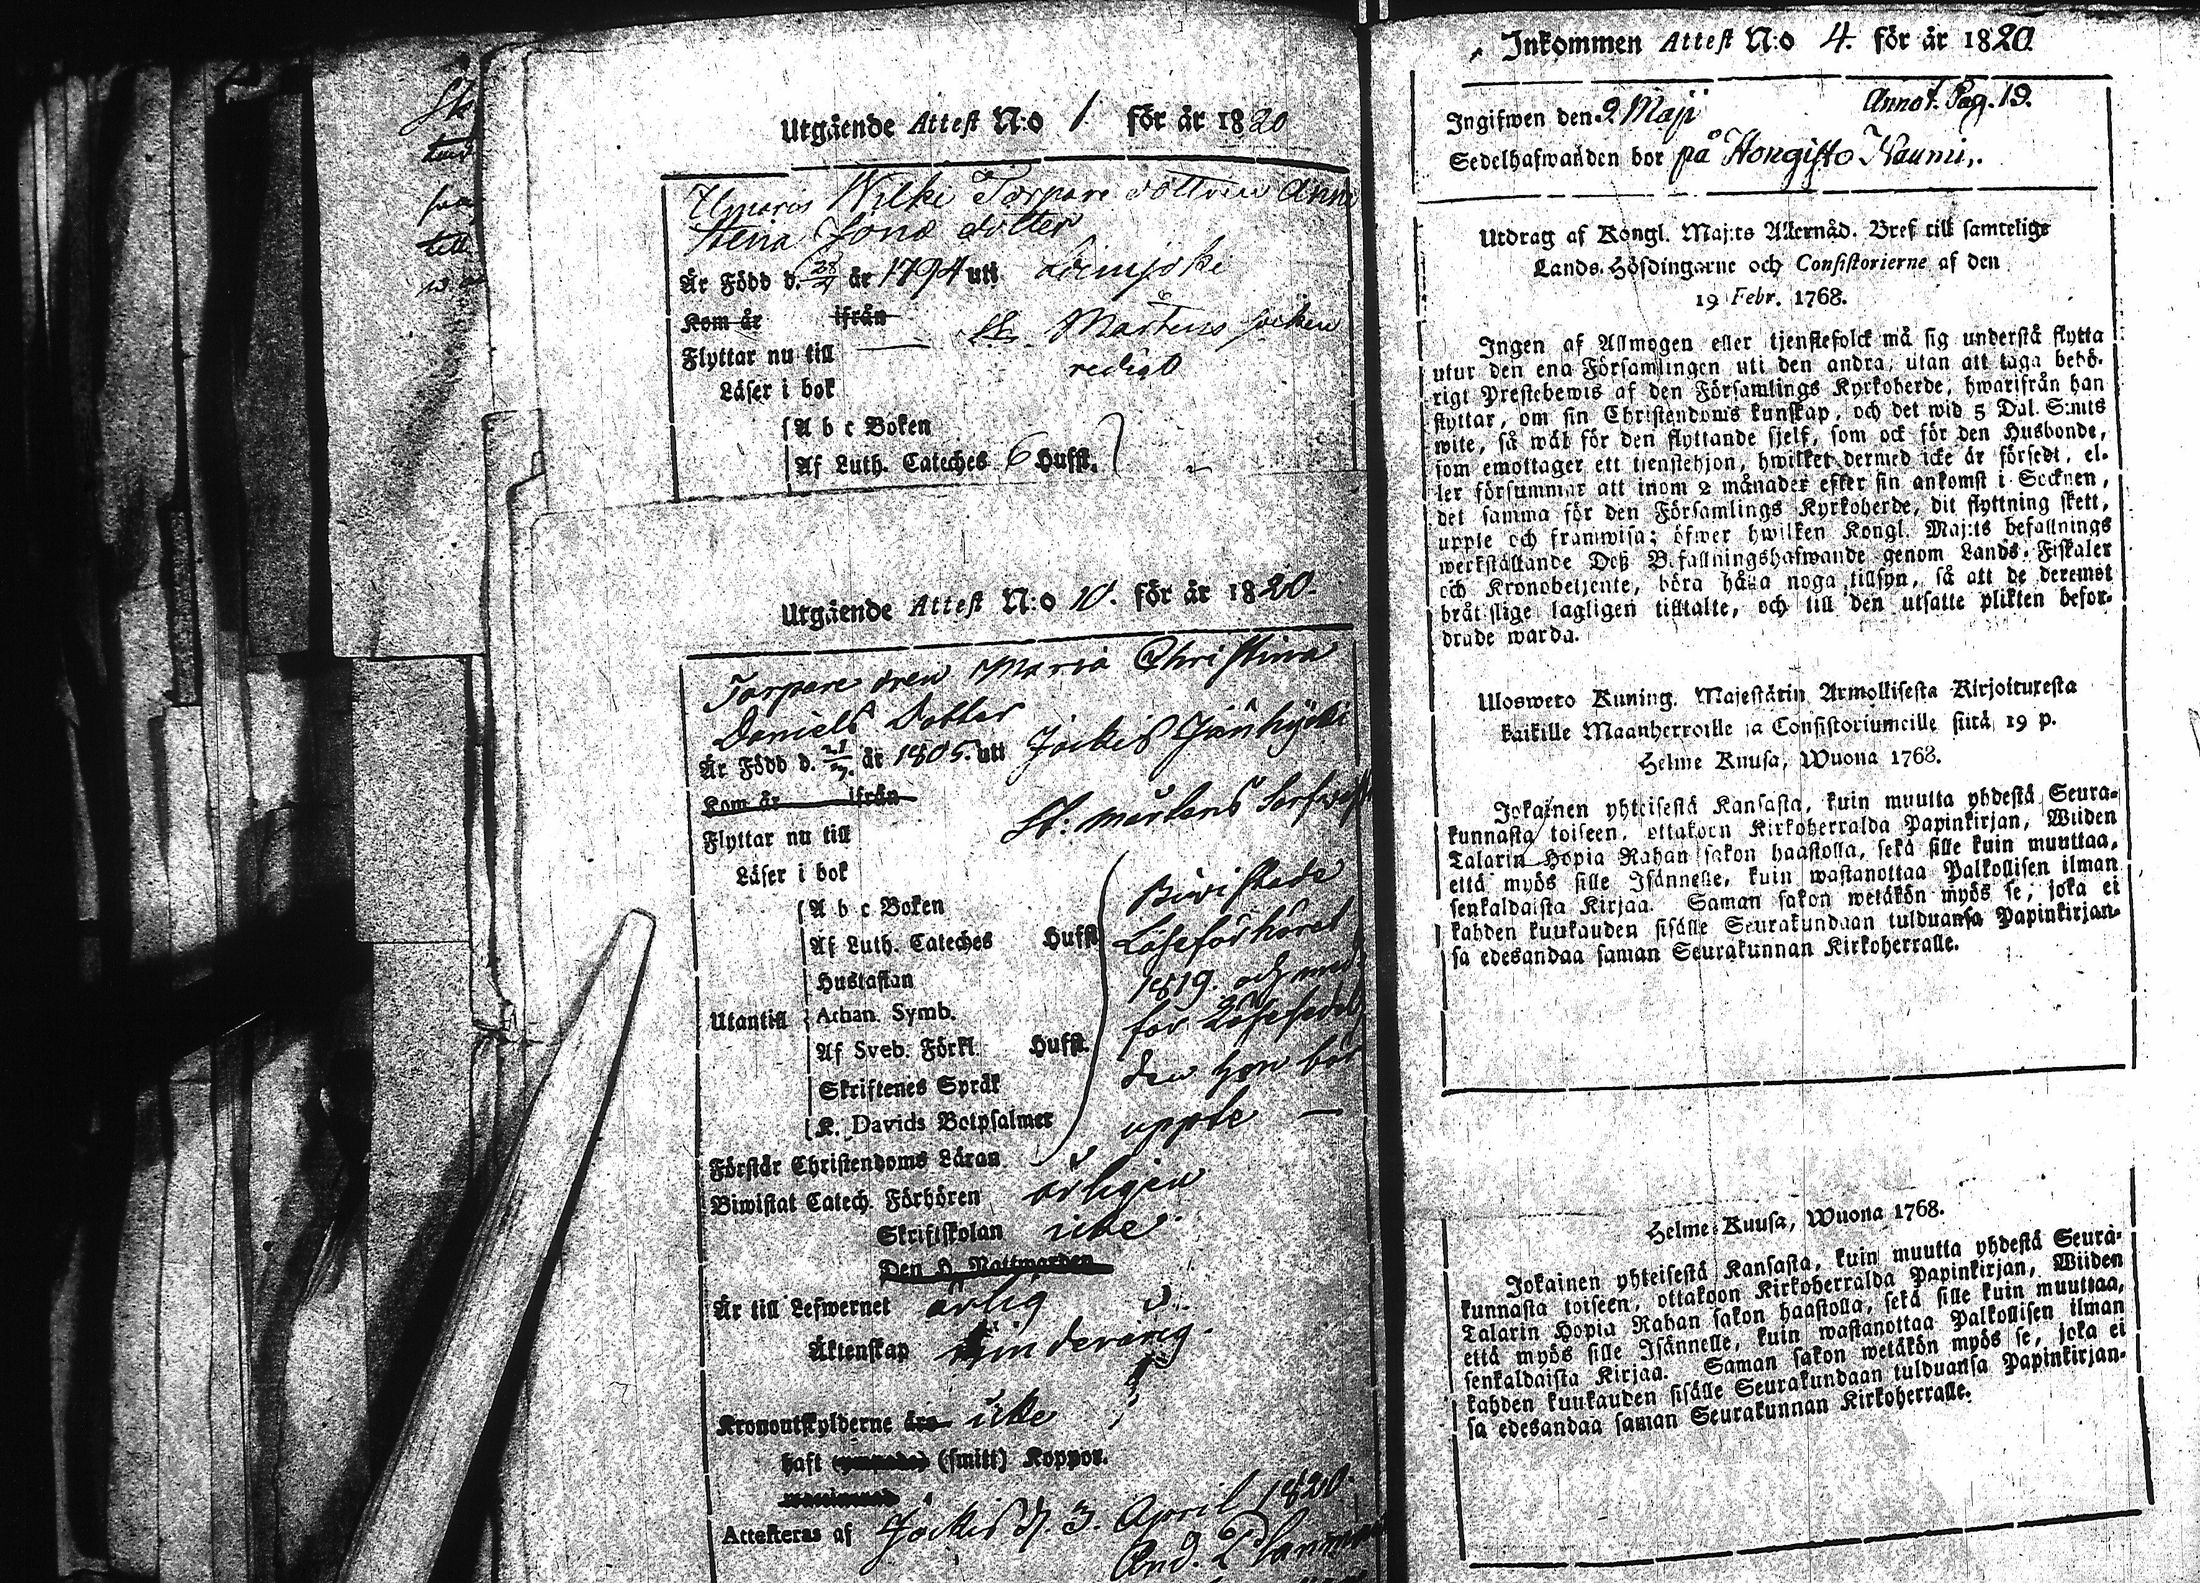 Utgående Attest N:o 1 för år 1820
Wilke Torpare dottren Anna
Stena Jons dotter
Är Född d. år 1794 uti Loimjoki
Kom år ifrån
Flyttar nu till St. Mårtens socken
Läser i bok redigt
A b c Boken
Af Luth. Cateches 6 Hufst.
Utgående Attest N:o 10. för år 1820.
Torpare dren Maria Christina
Daniels Dotter
Är Född d. år 1805. uti Jockis Jänhijoki
Kom år ifrån
Flyttar nu till St: Mårtens
Läser i bok
A b c Boken Bivistade
Af Luth. Cateches Hufst Läseförhöret
Hustaflan 1819. och med
Utantill Athan. Symb. för Läsesedel
Af Sveb. Förkl. Hufst. den hon bör
Skriftenes Språk
K. Davids Botpsalmer uppte —
Förstår Christendoms Läran
Biwistat Catech. Förhören årligen
Skriftskolan icke
Den H. Nattwarden
Är till Lefwernet ärlig
Äktenskap minderårig.
Kronoutskylderne äro icke
haft (smitt) Koppor.
Attesteras af Jockis d. 3. April 1820.
And.
Inkommen Attest N:o 4. för år 1820.
Ingifwen den 2 Maji Annot. Pag. 19.
Sedelhafwanden bor på Hongisto Naumi,.
Utdrag af Kongl. Maj:ts Allernåd. Bref till samtelige
Lands-Höfdingarne och Consistorierne af den
19 Febr. 1768.
Ingen af Allmogen eller tjenstefolck må sig understå flytta
utur den ena Församlingen uti den andra, utan att taga behö-
rigt Prestebewis af den Församlings Kyrkoherde, hwarifrån han
flyttar, om sin Christendoms kunskap, och det wid 5 Dal. S:mts
wite, så wäl för den flyttande sjelf, som ock för den Husbonde,
som emottager ett tjenstehjon, hwilket dermed icke är försedt, el-
ler försummar att inom 2 månader efter sin ankomst i Socknen,
det samma för den Församlings Kyrkoherde, dit flyttning skett,
uppte och framwisa; öfwer hwilken Kongl. Maj:ts befallnings
werkställande Deß Befallningshafwande genom Lands-Fiskaler
och Kronobetjente, böra hålla noga tillsyn, så att de deremot
bråtslige lagligen tilltalte, och till den utsatte plikten befor-
drade warda.
Ulosweto Kuning. Majestätin Armollisesta Kirjoituxesta
kaikille Maanherroille ja Consistoriumeille siitä 19 p.
Helme Kuusa, Wuona 1768.
Jokainen yhteisestä Kansasta, kuin muutta yhdestä Seura-
kunnasta toiseen, ottakoon Kirkoherralda Papinkirjan, Wiiden
Talarin Hopia Rahan sakon haastolla, sekä sille kuin muuttaa,
että myös sille Isännelle, kuin wastanottaa Palkollisen ilman
senkaldaista Kirjaa. Saman sakon wetäkön myös se, joka ei
kahden kuukauden sisälle Seurakundaan tulduansa Papinkirjan-
sa edesandaa saman Seurakunnan Kirkoherralle.
Helme-Kuusa, Wuona 1768.
Jokainen yhteisestä Kansasta, kuin muutta yhdestä Seura-
kunnasta toiseen, ottakoon Kirkoherralda Papinkirjan, Wiiden
Talarin Hopia Rahan sakon haastolla, sekä sille kuin muuttaa,
että myös sille Isännelle, kuin wastanottaa Palkollisen ilman
senkaldaista Kirjaa. Saman sakon wetäkön myös se, joka ei
kahden kuukauden sisälle Seurakundaan tulduansa Papinkirjan-
sa edesandaa saman Seurakunnan Kirkoherralle.